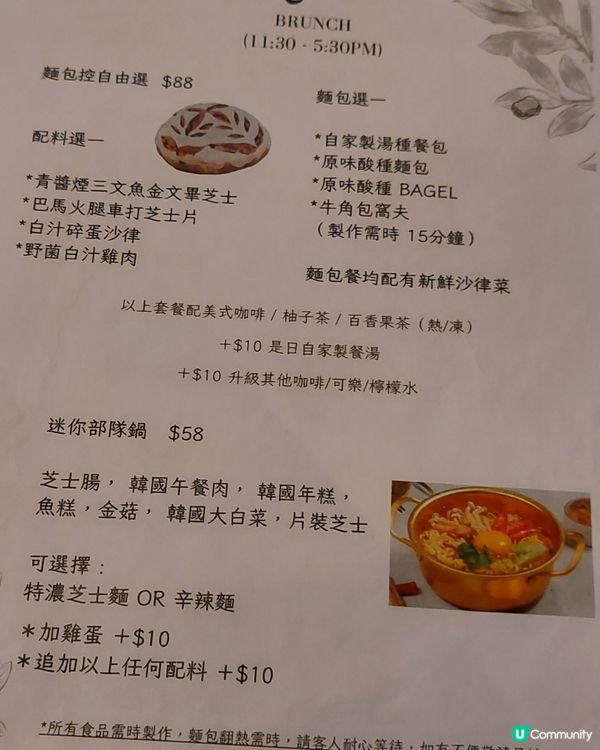 BRUNCH
(11:30 - 5:30PM)
麵包控自由選 $88
配料選一
*青醬煙三文魚金文畢芝士
*巴馬火腿車打芝士片
*白汁碎蛋沙律
*野菌白汁雞肉
麵包選一
*自家製湯種餐包
*原味酸種麵包
*原味酸種 BAGEL
*牛角包窩夫
(製作需時 15分鐘)
麵包餐均配有新鮮沙律菜
以上套餐配美式咖啡 / 柚子茶 / 百香果茶 (熱/凍)
+$10 是日自家製餐湯
+$10 升級其他咖啡/可樂/檸檬水
迷你部隊鍋 $58
芝士腸, 韓國午餐肉, 韓國年糕,
魚糕, 金菇, 韓國大白菜, 片裝芝士
可選擇:
特濃芝士麵 OR 辛辣麵
*加雞蛋 +$10
*追加以上任何配料 +$10
*所有食品需時製作, 麵包翻熱需時, 請客人耐心等待, 如有不便
U Community